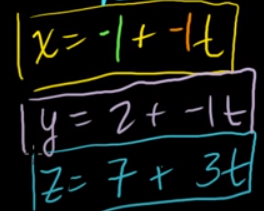 x = -1 + -1t
y = 2 + -1t
z = 7 + 3t